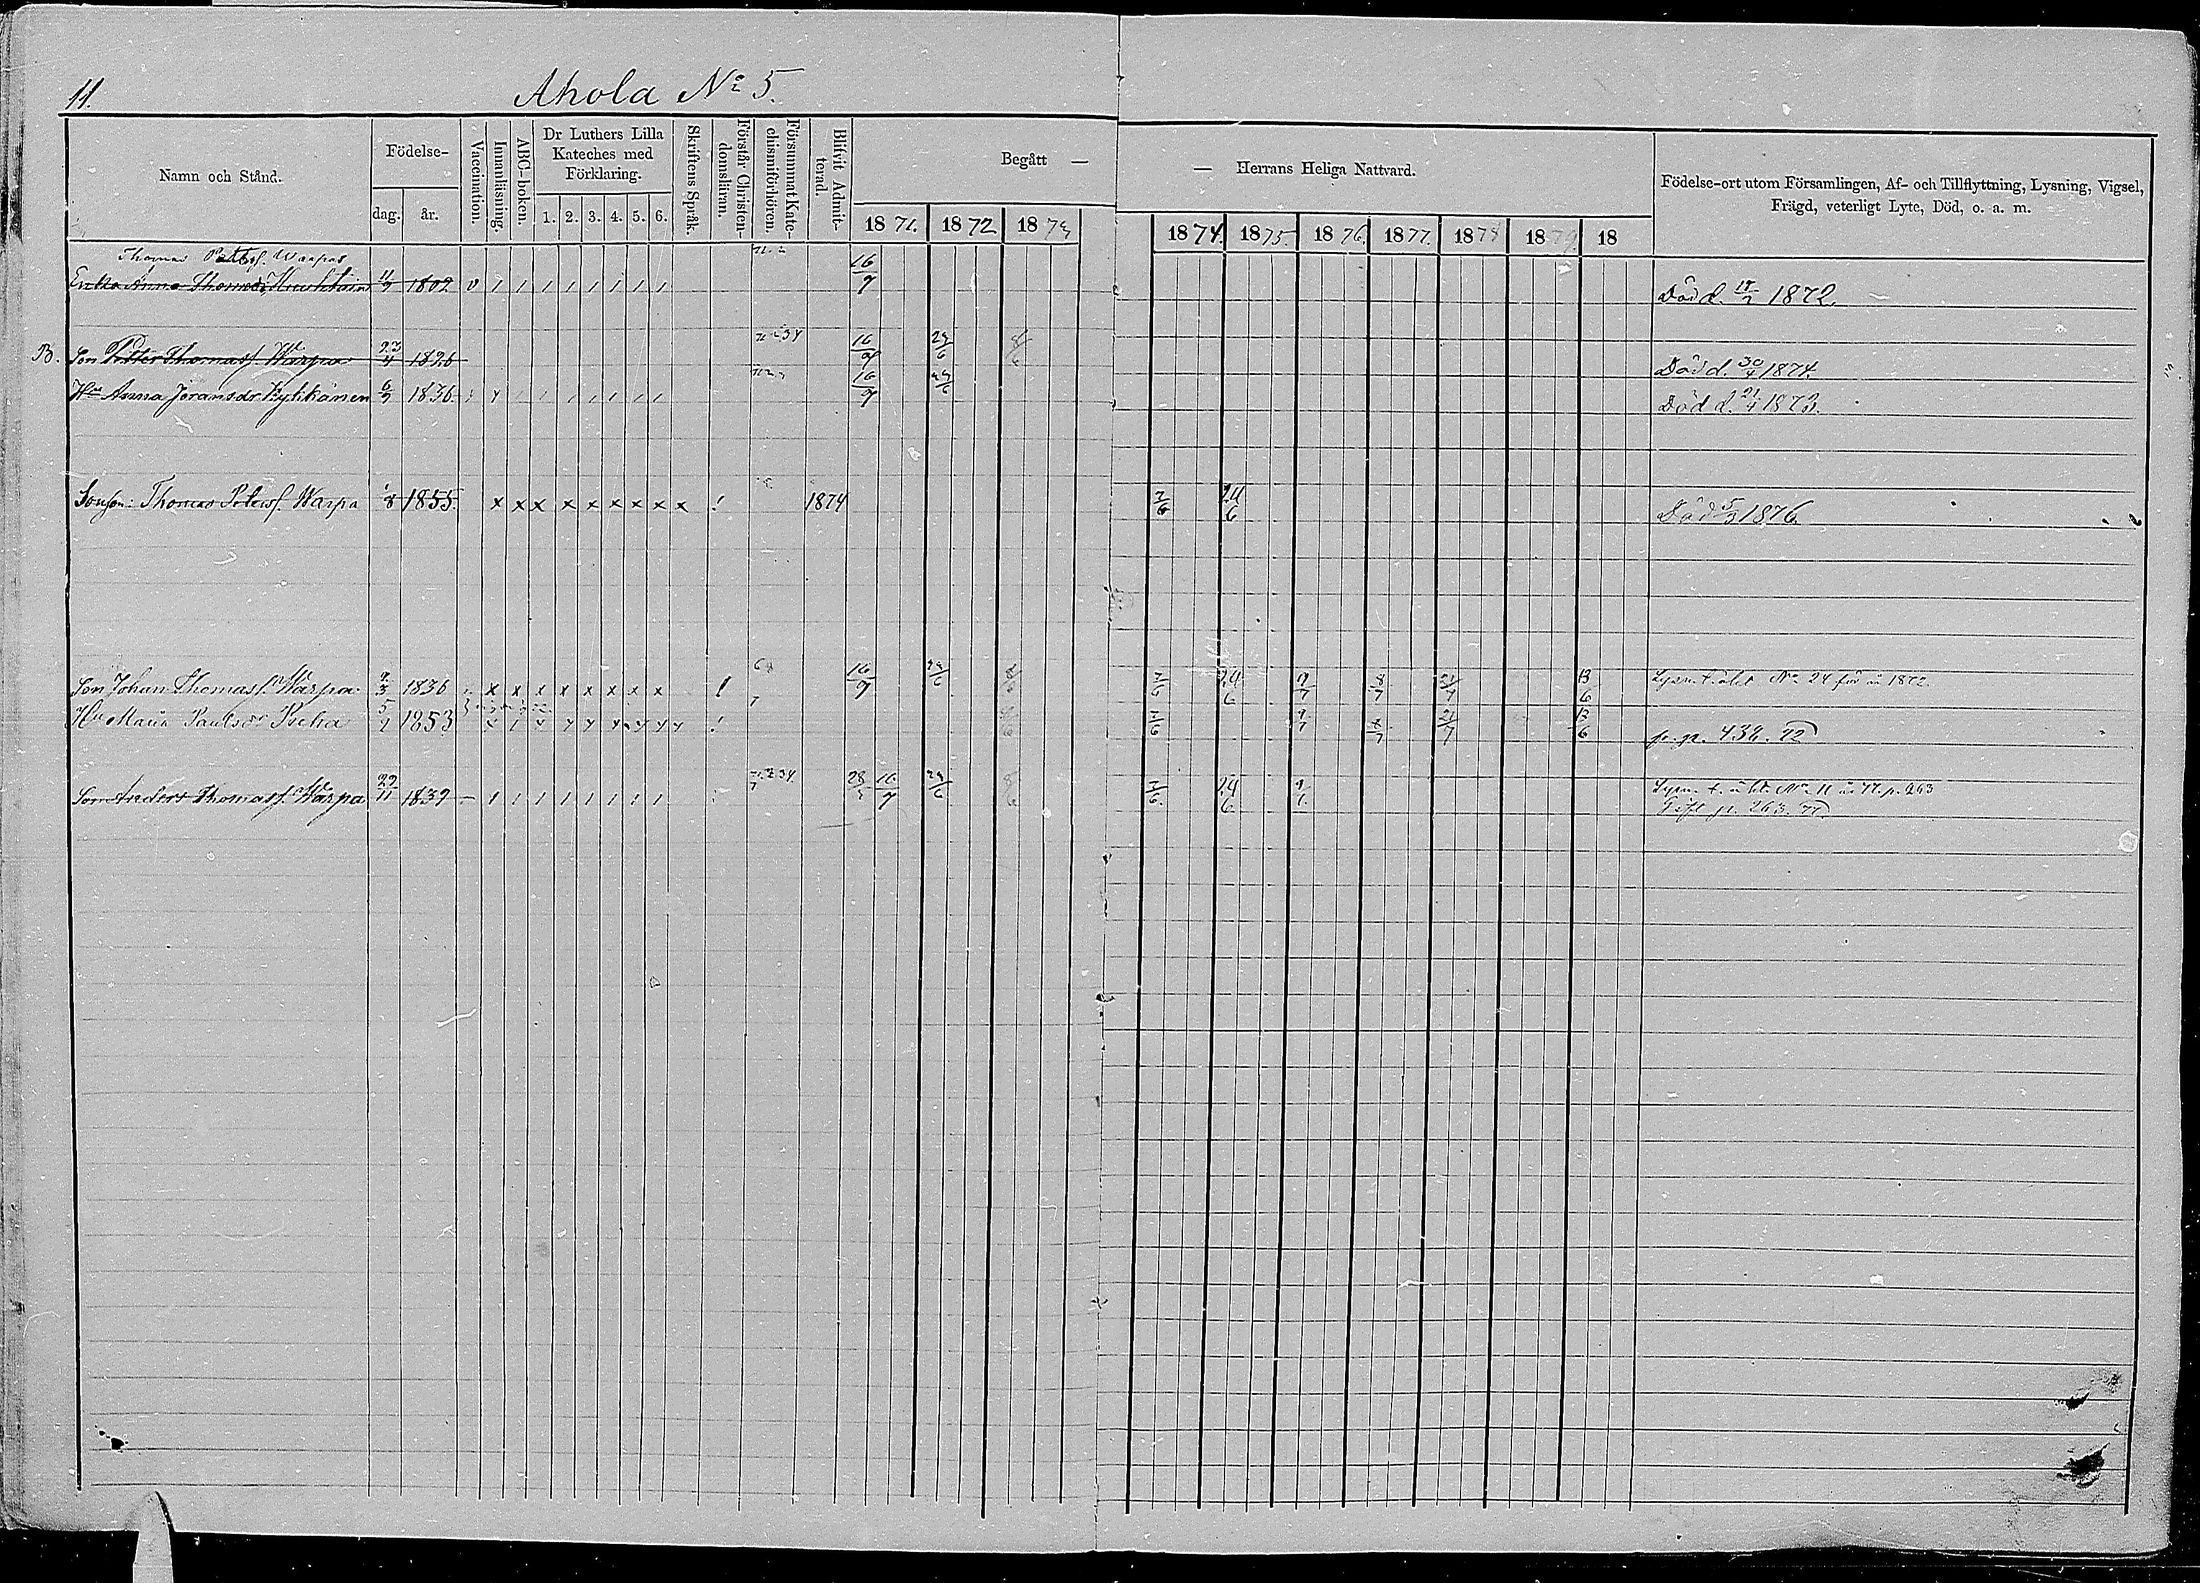 11.
Ahola No 5.
Namn och Stånd.
Födelse-
dag.
år.
Vaccination.
Innanläsning.
ABC-boken.
Dr Luthers Lilla
Kateches med
Förklaring.
1. 2. 3. 4. 5. 6.
Skriftens Språk.
Förstår Christen-
domsläran.
Försummat Kate-
chismiförhören.
Blifvit Admit-
terad.
Begått —
— Herrans Heliga Nattvard.
1871. 1872 1873
1874. 1875. 1876. 1877. 1878 1879. 18
Födelse-ort utom Församlingen, Af- och Tillflyttning, Lysning, Vigsel,
Frägd, veterligt Lyte, Död, o. a. m.
Thomas Petersf. Warpas
Enka Anna Thomasdr 11/9 1802 v 16/9 Död d. 1872
B. Son Petter Thomasf. Warpa 23/4 1826 16/9 29/6 8/6 Död d. 30/4 1874.
Hu Anna Jöransdr Kylikäinen 6/9 1836 16/9 29/6 Död d. 21/4 1873.
Sonson: Thomas Petersf. Warpa 1/8 1855. x x x x x x x x x ! 1874 7/6 24/6 Död 5/3 1876.
Son Johan Thomasf. Warpa 9/3 1836 x x x x x x x x ! 16/9 29/6 8/6 7/6 24/6 9/7 8/7 21/7 13/6 Lysn. t. äkt No 24 för år 1872.
Hu Maria Paulsdr Puha 5/1 1853 ! 7/6 9/7 8/7 21/7 13/6 fr. p. 438. 72
Son Anders Thomasf. Warpa 22/11 1839 — 28 16/9 29/6 8/6 7/6 24/6 9/7. Lysn. t. äkt. No 11 år 77. p. 263
p. 263. 77.